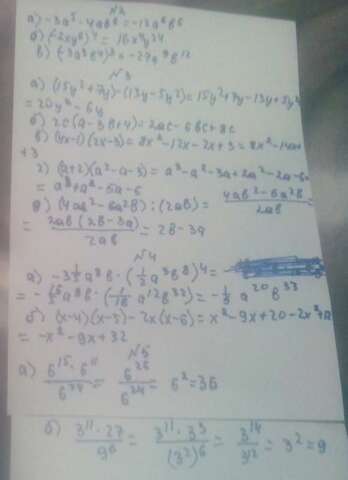 N2
а) -3a⁵ · 4ab⁶ = -12a⁶b⁶
б) (-2xy⁶)⁴ = 16x⁴y²⁴
в) (-3a³b⁴)³ = -27a⁹b¹²
N3
а) (15y²+7y)-(13y-5y²)=15y²+7y-13y+5y²
=20y²-6y
б) 2c(a-3b+4)=2ac-6bc+8c
в) (4x-1)(2x-3)=8x²-12x-2x+3=8x²-14x
+3
г) (a+2)(a²-a-3)=a³-a²-3a+2a²-2a-6=
=a³+a²-5a-6
д) (4ab²-6a²b):(2ab)= (4ab²-6a²b)/2ab =
= 2ab(2b-3a)/2ab = 2b-3a
N4
а) -3 1/5 a⁸b · (-1/2 a³b⁸)⁴ =
= -16/5 a⁸b · (-1/16 a¹²b³²) = -1/5 a²⁰b³³
б) (x-4)(x-5)-2x(x-6)=x²-9x+20-2x²+12
= -x²-9x+32
N5
а) 6¹⁵·6¹¹/6²⁴ = 6²⁶/6²⁴ = 6² = 36
б) 3¹¹·27/9⁶ = 3¹¹·3³/(3²)⁶ = 3¹⁴/3¹² = 3² = 9